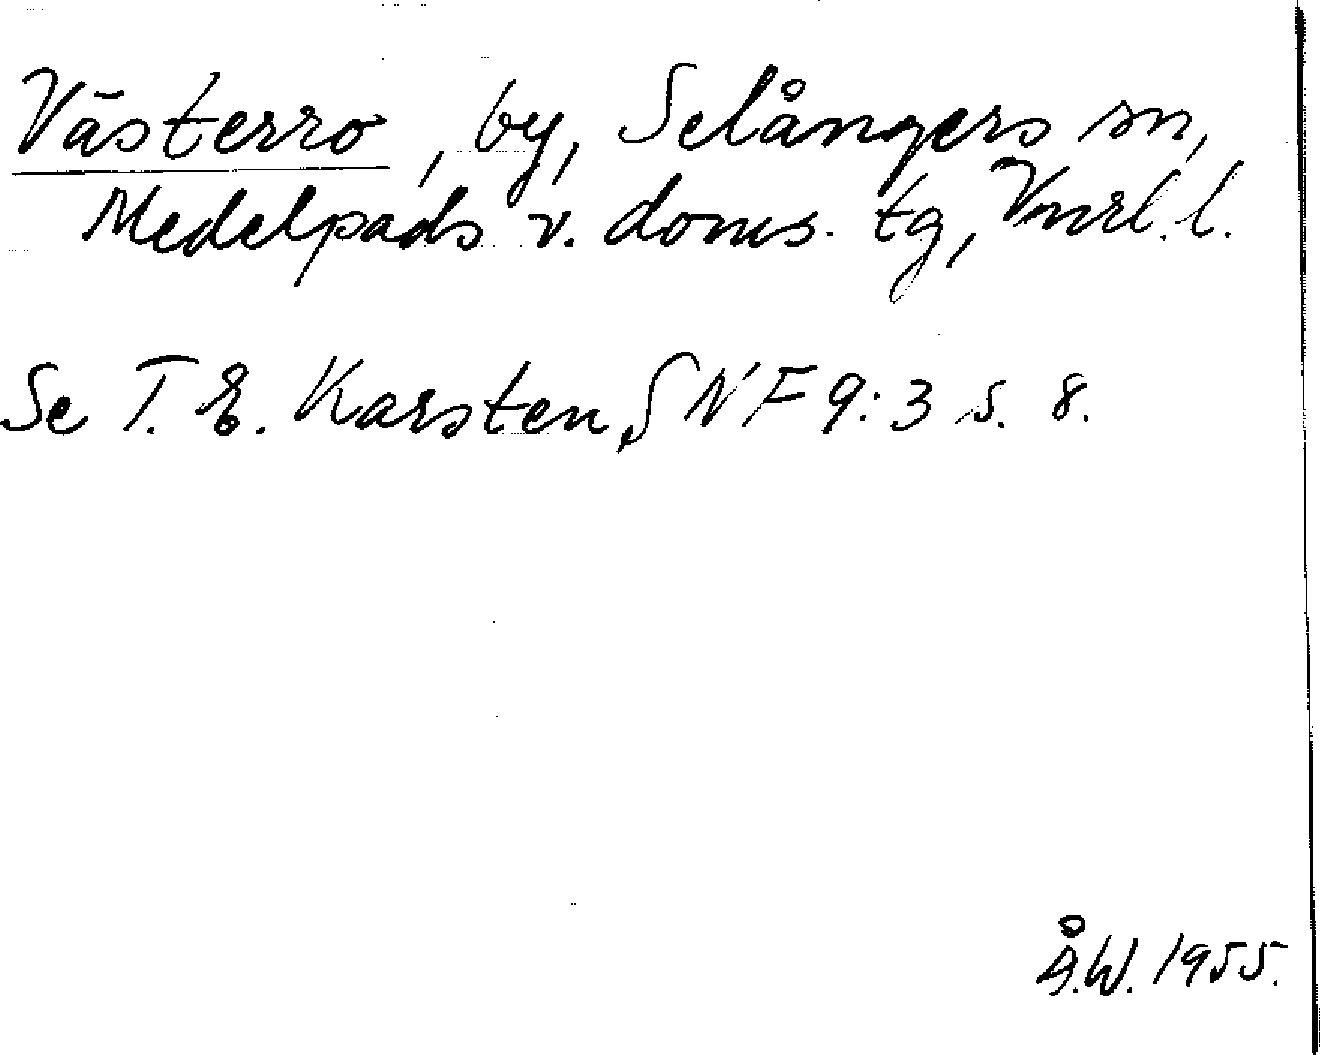 Västerro, by, Selångers sn,
Medelpads v. doms. tg, Vnrl. l.
Se T. E. Karsten, SNF 9:3 s. 8.
Å.W. 1955.